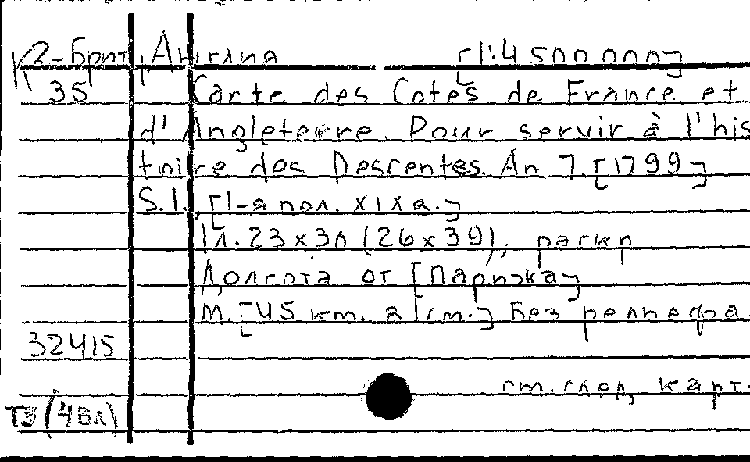 К2-Брит, Англия [1:4 500 000]
35 Carte des Cotes de France et
d'Angleterre. Pour servir à l'his
toire des Descentes. An 7. [1799]
S.l., [1-я пол. XIX в.]
1л. 23x36 (26x39), раскр
Долгота от [Парижа]
М. [45 км. в 1 см.] Без рельефа.
32415
см. след. карт.
ТЗ (4 вл)